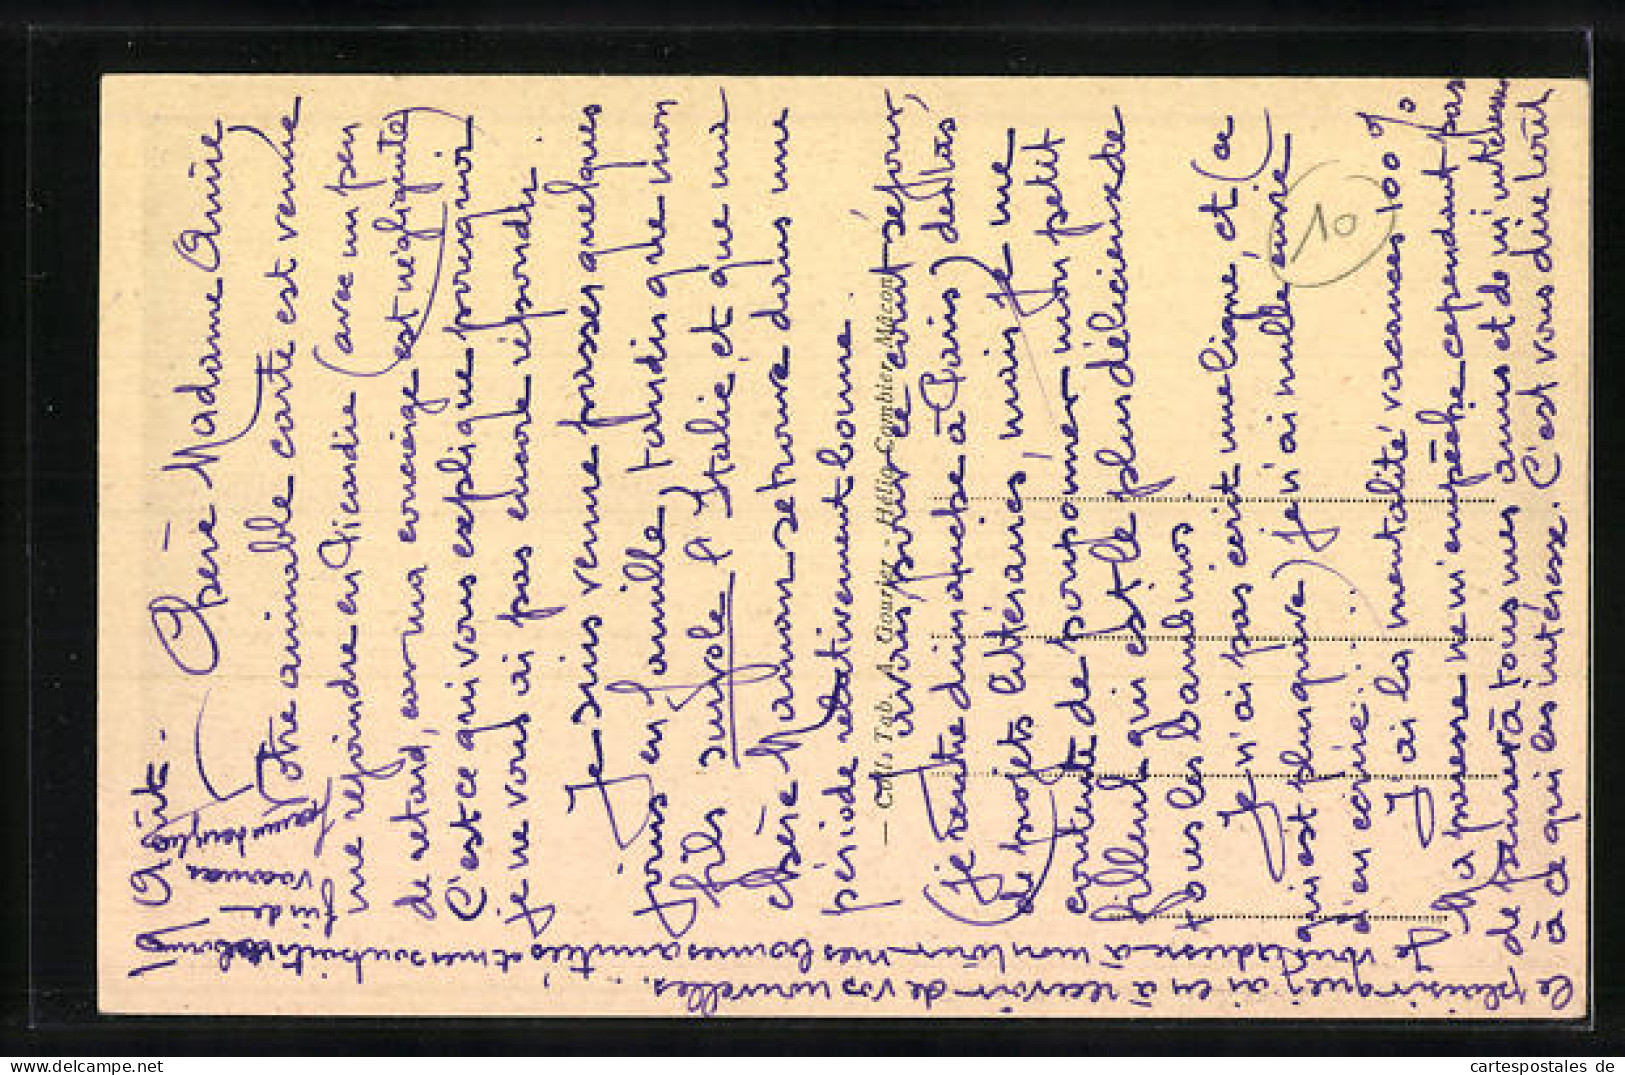 19 Août.
Chère Madame Amie,
Votre aimable carte est venue
me rejoindre en Picardie (avec un peu
de retard, car ma concierge est négligente)
C'est ce qui vous explique pourquoi
je ne vous ai pas encore répondu.
Je suis venue passer quelques
jours en famille, tandis que mon
fils survole l'Italie, et que ma
chère Maman se trouve dans une
période relativement bonne.
aussi, pour ce court séjour,
(je rentre dimanche à Paris) de
projets littéraires, mais je me
contente de pouponner mon petit
filleul qui est le plus délicieux de
tous les bambinos
Je n'ai pas écrit une ligne, et (ce
qui est plus grave) je n'ai nulle envie
d'en écrire...
J'ai la mentalité vacances 100%
Ma paresse ne m'empêche cependant pas
de penser à tous mes amis et de m'intéresser
à ce qui les intéresse. C'est vous dire tout
le plaisir que j'ai eu à recevoir de vos nouvelles...
Je vous adresse à mon tour mes bonnes amitiés, et mes souhaits de bonne
fin de
vacances
— Coll. Tab. A. Gourjer, Hélio Combier Mâcon
10
cartespostales de